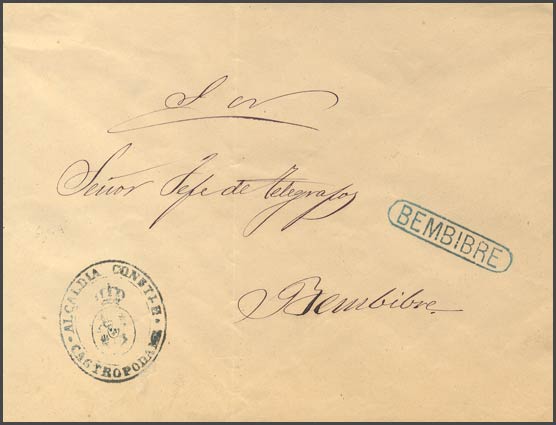 S. N.
Señor Jefe de telegrafos
BEMBIBRE
Bembibre.
ALCALDIA CONSTLE.
CASTROPODAME